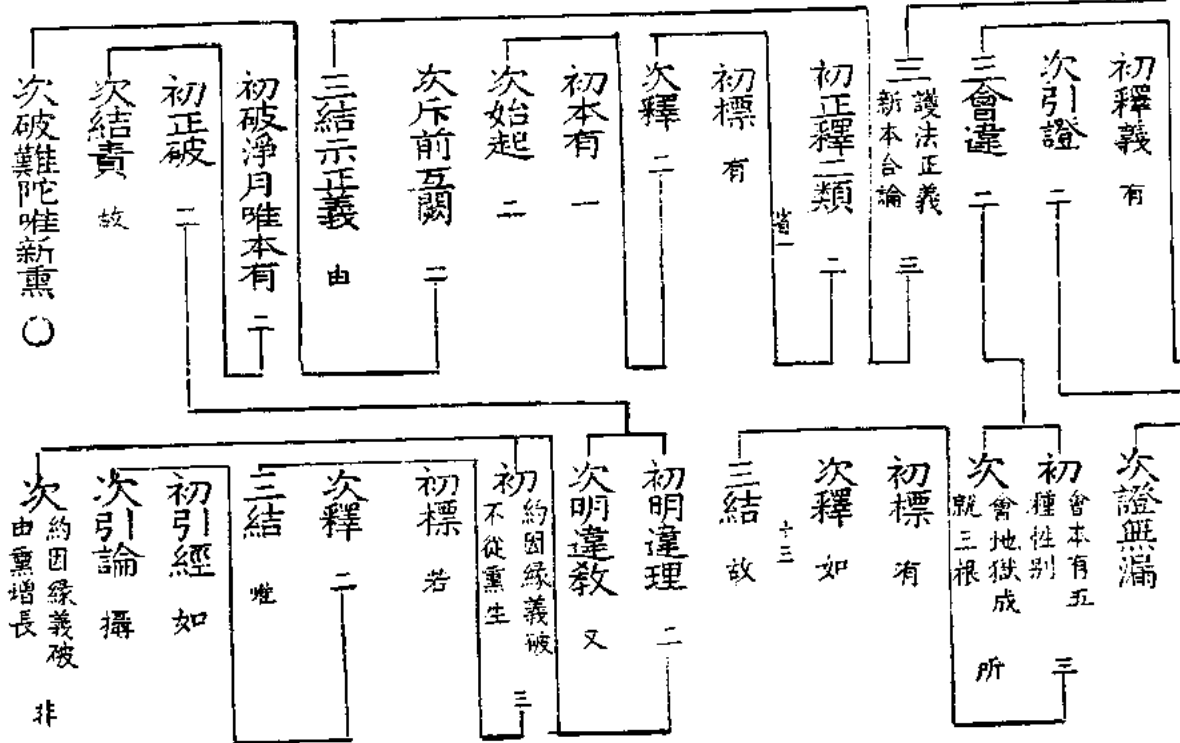 初釋義 有
次引證 二
三會違 二
三 護法正義新本合論 三
初正釋二類 二
初標 有
次釋 二
初本有 一
次始起 二
次斥前互闕 二
三結示正義 由
初破淨月唯本有 二
初正破 二
次結責 故
次破難陀唯新熏 ○
次證無漏
初 會本有五種性別 三
次 會地獄成就三根 所
初標 有
次釋 如
十三
三結 故
初明違理 二
次明違教 又
初 約因緣義破不從熏生 三
初標 若
次釋 二
三結 唯
初引經 如
次引論 攝
次 約因緣義破由熏增長 非